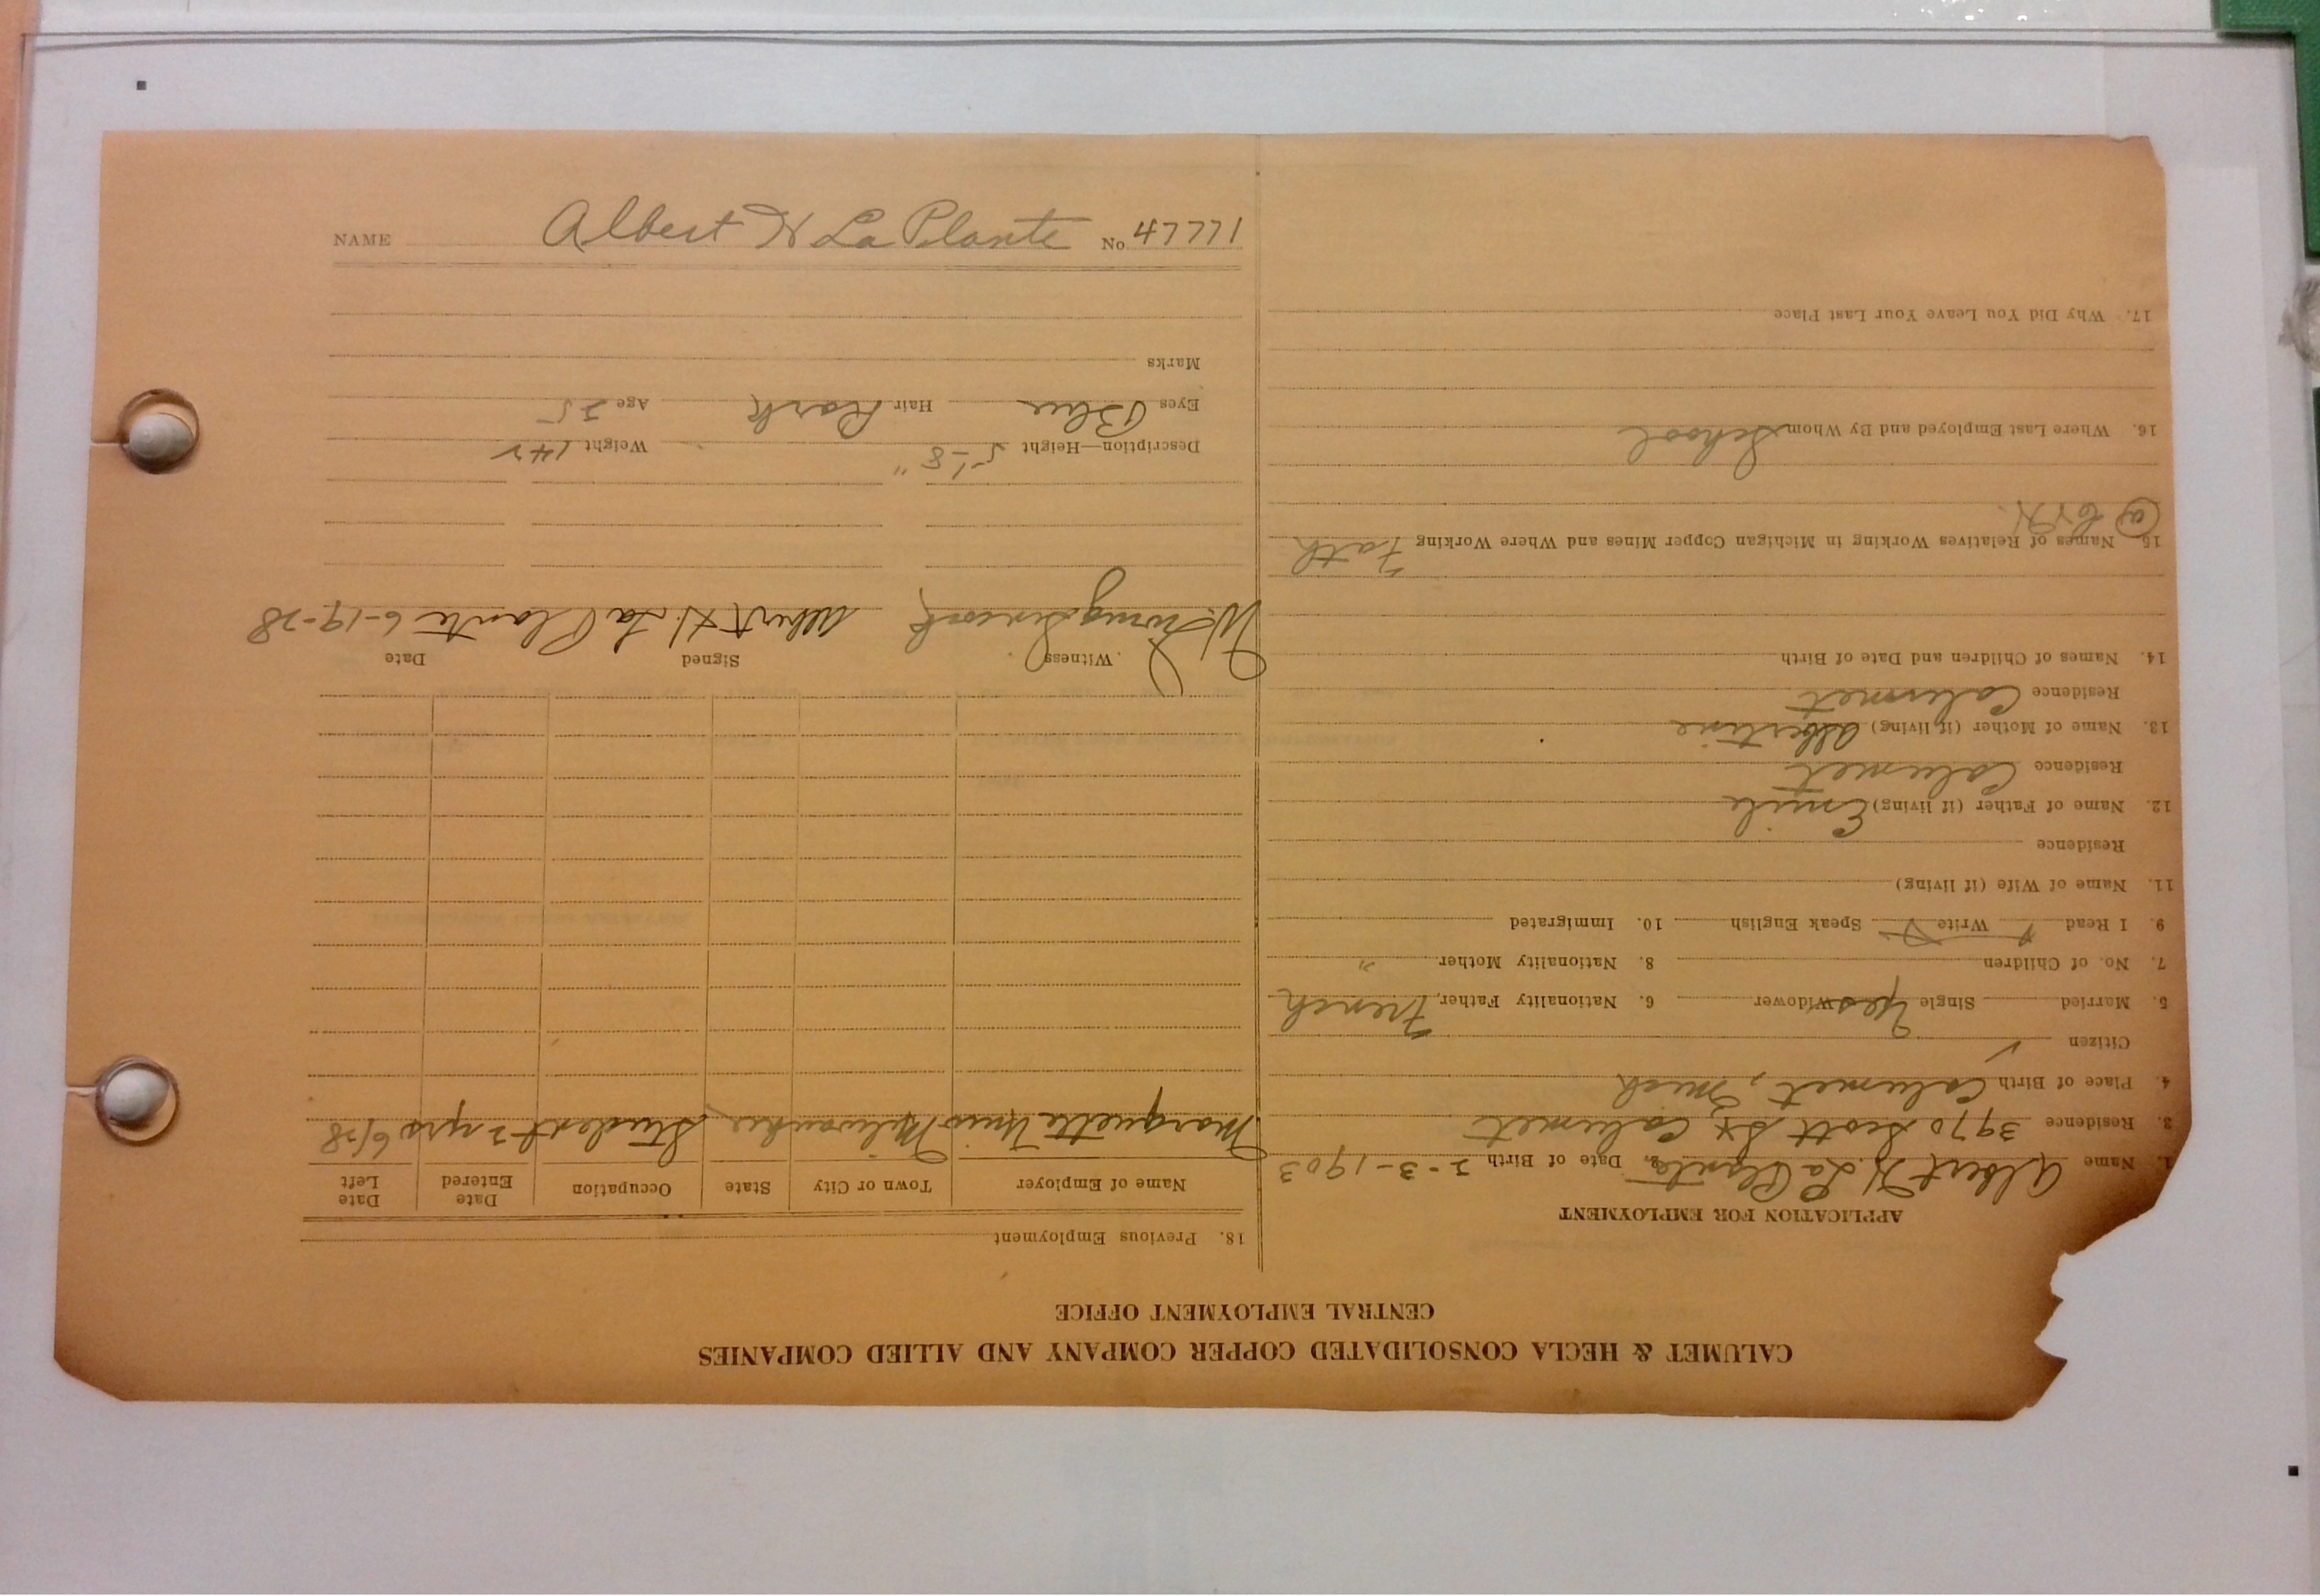 CALUMET & HECLA CONSOLIDATED COPPER COMPANY AND ALLIED COMPANIES
CENTRAL EMPLOYMENT OFFICE
APPLICATION FOR EMPLOYMENT
1. Name Albert N. La Plante 2. Date of Birth 2-3-1903
3. Residence 3970 Scott St Calumet
4. Place of Birth Calumet, Mich
Citizen ✓
5. Married Single Yes Widower 6. Nationality Father, French
7. No. of Children 8. Nationality Mother "
9. I Read Write Speak English 10. Immigrated
11. Name of Wife (if living)
Residence
12. Name of Father (if living) Emile
Residence Calumet
13. Name of Mother (if living) Albertine
Residence Calumet
14. Names of Children and Date of Birth
15. Names of Relatives Working in Michigan Copper Mines and Where Working Fath
16. Where Last Employed and By Whom School
17. Why Did You Leave Your Last Place
18. Previous Employment
Name of Employer Town or City State Occupation Date Entered Date Left
Marquette Univ Milwaukee Student 2 yrs 6/28
Witness Signed Date
Albert N. La Plante 6-19-28
Description—Height 5'-8" Weight 142
Eyes Blue Hair Dark Age 25
Marks
NAME Albert N La Plante No. 47771